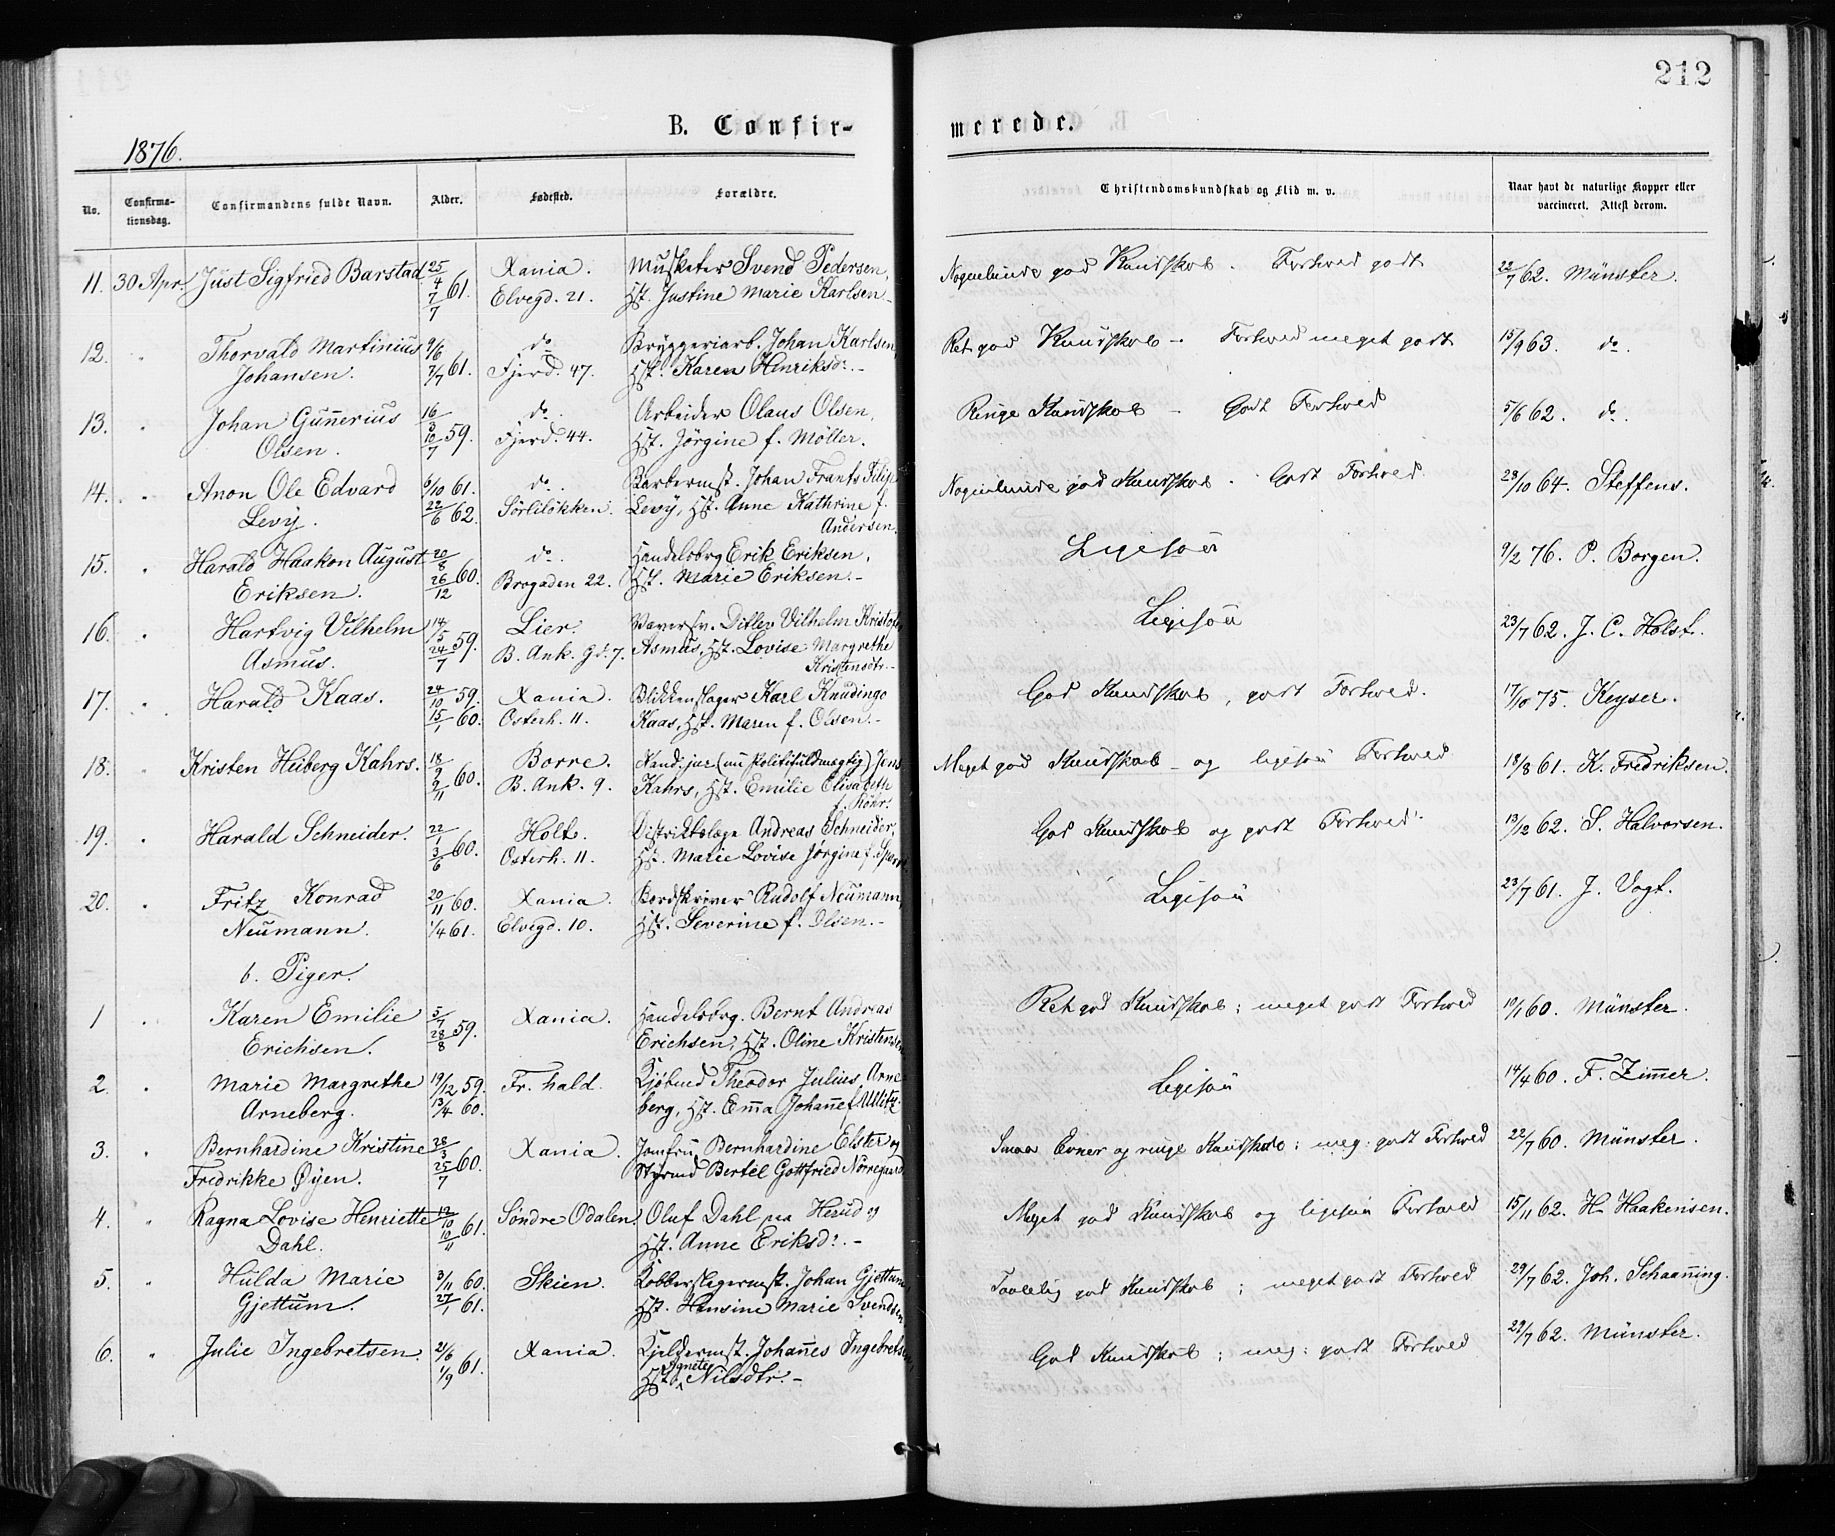 212
B. Confir-
merede.
1876.
No.
Confirma-
tionsdag.
Confirmandens fulde Navn.
Alder.
Fødested.
Forældre.
Christendomskundskab og Flid m. v.
Naar havt de naturlige Kopper eller
vaccineret. Attest derom.
11. 30 Apr. Just Sigfried Barstad 25/4 61. Xania. Musketer Svend Pedersen, Nogenlunde god Kundskab. Forhold godt 22/7 62. Münster.
7/7 Elvegd. 21. Hst. Justine Marie Karlsen.-
12. " Thorvald Martinius 9/6 do. Bryggeriarb. Johan Karlsen, Ret god Kundskab - Forhold meget godt 15/9 63. do.
Johansen. 7/7 61. Fjerd. 47. Hst. Karen Henriksd:.-
13. " Johan Gunnerius 16/3 do. Arbeider Olaus Olsen, Ringe Kundskab - Godt Forhold 5/6 62. do.
Olsen. 10/7 59. Fjerd. 44. Hst. Jörgine f. Möller.
14. " Anon Ole Edvard 6/10 61. do. Barbermst. Johan Frants Filip Nogenlunde god Kundskab. Godt Forhold 28/10 64. Steffens.
Levy. 22/6 62. Sörliløkken. Levy, Hst. Anne Kathrine f.
Andersen.
15. " Harald Haakon August 20/8 do. Handelsbrg Erik Eriksen, Ligesaa 9/2 76. P. Borgen.
Eriksen. 26/12 60. Brogaden 22. Hst. Marie Eriksen.-
16. " Hartvig Vilhelm 14/5 59. Lier. Ditlev Vilhelm Kristofer Ligesaa 23/7 62. J. C. Holst.
Asmus. 24/7 B. Ank. Gd. 7. Asmus, Hst. Lovise Margrethe
Kristensdtr.-
17. " Harald Kaas. 24/10 59. Xania. Blikkenslager Karl Knudingo God Kundskab, godt Forhold. 17/10 75. Keyser.
15/1 60. Osterh. 11. Kaas, Hst. Maren f. Olsen.-
18. " Kristen Heiberg Kahrs. 18/9 60. Borre. Kand. jur (nu Politifuldmægtig) Jens Meget god Kundskab - og ligesaa Forhold 18/8 61. K. Fredriksen.
2/11 B. Ank. 9. Kahrs, Hst. Emilie Elisabeth
19. " Harald Schneider. 22/1 60. Holt. Distriktslæge Andreas Schneider, God Kundskab og godt Forhold. 13/12 62. S. Halvorsen.
3/6 Osterh. 11. Hst. Marie Lovise Jørgine f.
20. " Fritz Konrad 20/11 60. Xania. Bordskriver Rudolf Neumann, Ligesaa 23/7 61. J. Vogt.
Neumann. 1/4 61. Elvegd. 10. Hst. Severine f. Olsen.-
b. Piger.
1 " Karen Emilie 5/7 59. Xania. Handelsbrg. Bernt Andreas Ret god Kundskab; meget godt Forhold 19/1 60. Münster.
Erichsen. 28/8 Erichsen, Hst. Oline Kristensen
2 " Marie Margrethe 19/12 59. Fr. hald. Kjøbmd Theodor Julius Arne Ligesaa 14/4 60. F. Zimmer.
Arneberg. 13/4 60. berg, Hst. Emma Johanne f. Ullitz
3. " Bernhardine Kristine 28/3 60. Xania. Jomfru Bernhardine Elster og Smaa Evner og ringe Kundskab; meg: godt Forhold 22/7 60. Münster.
Fredrikke Øyen. 25/7 Styrmd Bertel Gottfried Nörregaard
4. " Ragna Lovise Henriette 19/10 61. Søndre Odalen. Oluf Dahl paa Herud og Meget god Kundskab og ligesaa Forhold 15/11 62. H. Haakensen.
Dahl. 10/11 Hst. Anne Eriksd:.-
5. " Hulda Marie 3/11 60. Skien. Kobberslagermst. Johan Gjettum Taalelig god Kundskab; meget godt Forhold 29/7 62. Joh. Schaanning.
Gjettum. 27/1 61. Hst. Hansine Marie Svendsen
6. " Julie Ingebretsen. 21/6 61. Xania. Kjeldermst. Johannes Ingebretsen, God Kundskab; meg: godt Forhold 29/7 62. Münster.
1/9 Hst. Agnete Nilsdtr.-